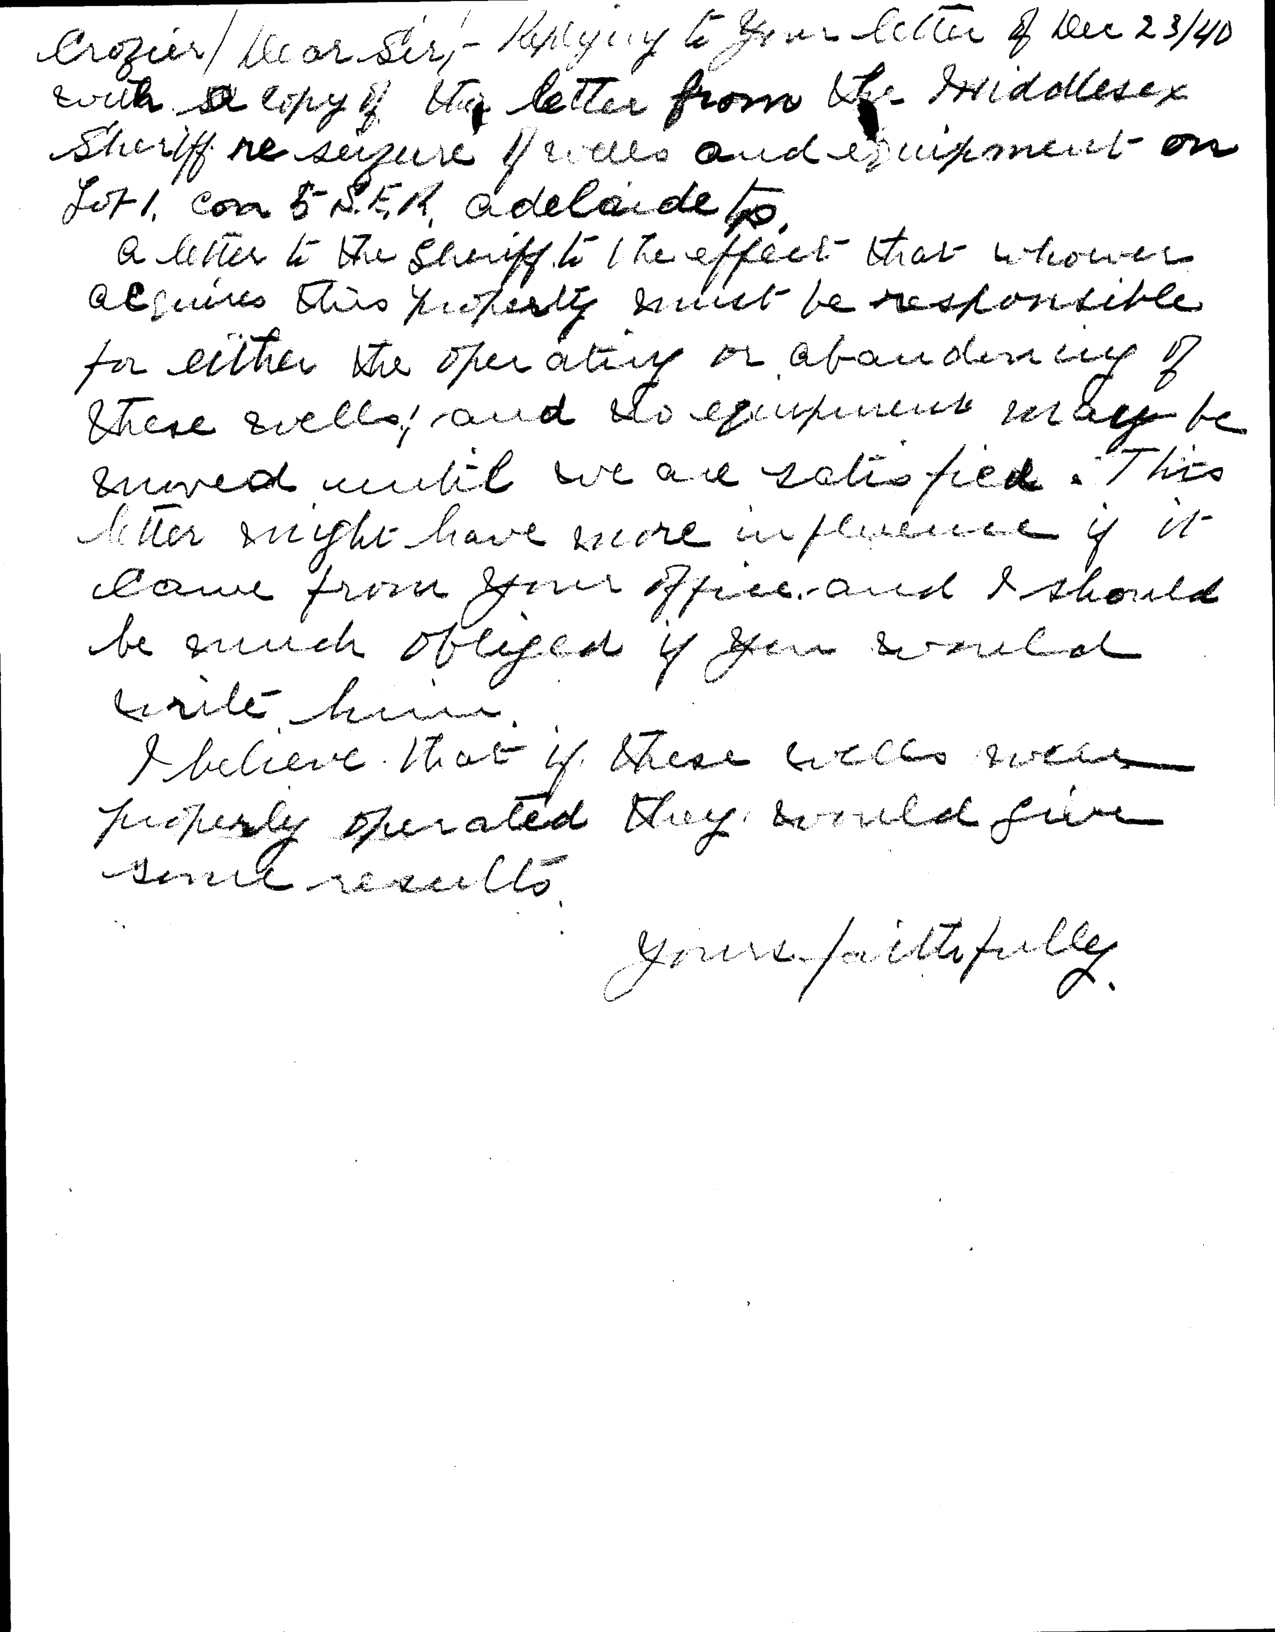 Crozier/ Dear Sir,- Replying to your letter of Dec 23/40
with a copy of the letter from the Middlesex
Sheriff re seizure of wells and equipment on
Lot 1, con 5 S.E.R. adelaide tp.
a letter to the Sheriff to the effect that whoever
acquires this property must be responsible
for either the operating or abandoning of
these wells; and no equipment may be
moved until we are satisfied. This
letter might have more influence if it
came from your office and I should
be much obliged if you would
write him.
I believe that if these wells were
properly operated they would give
some results.
Yours faithfully.